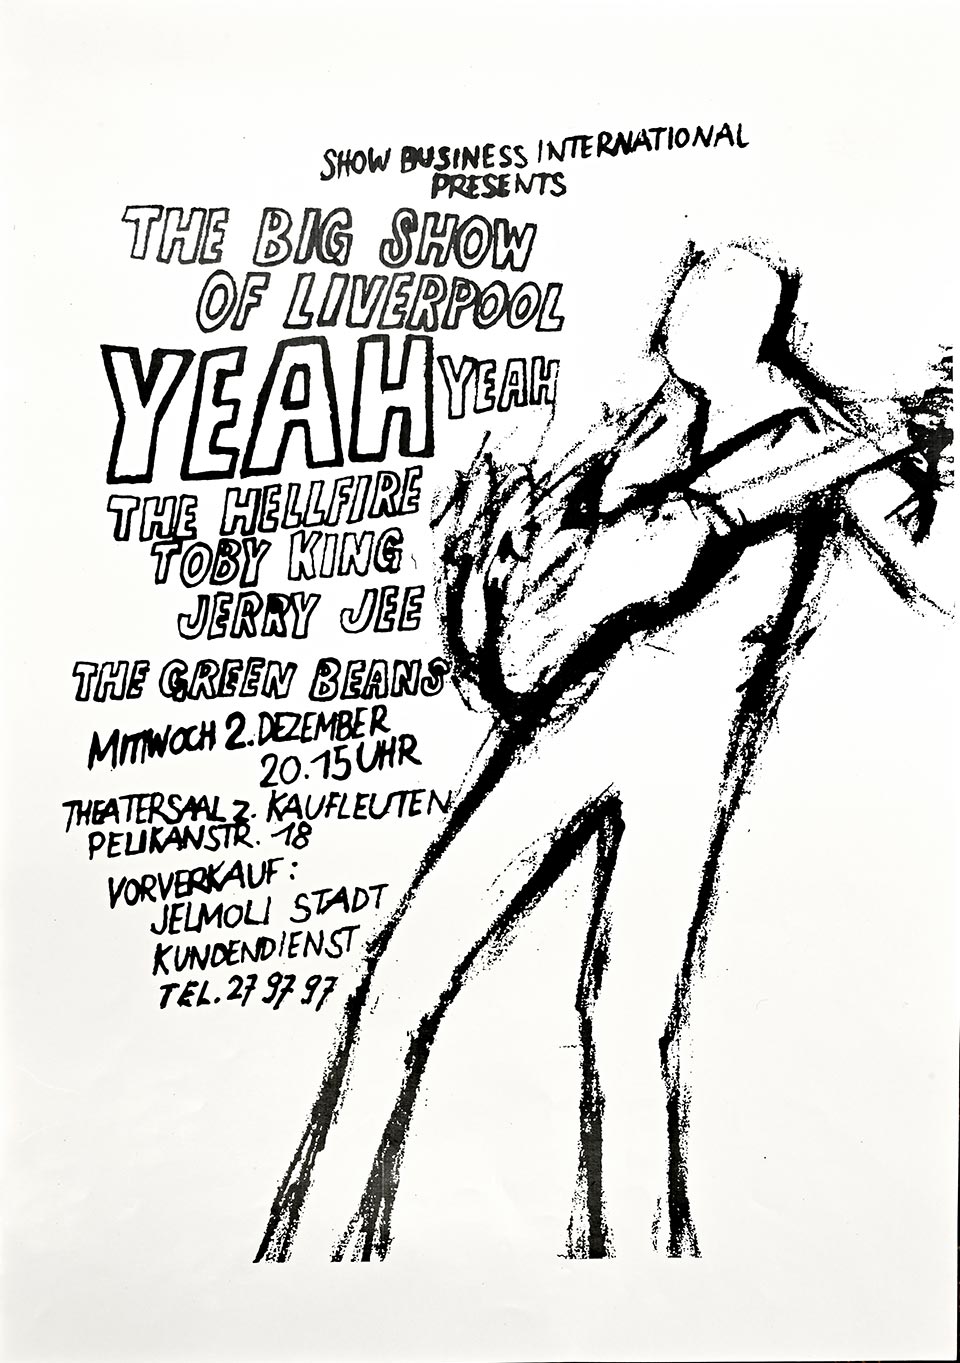 SHOW BUSINESS INTERNATIONAL
PRESENTS
THE BIG SHOW
OF LIVERPOOL
YEAH YEAH
THE HELLFIRE
TOBY KING
JERRY JEE
THE GREEN BEANS
MITTWOCH 2. DEZEMBER
20.15 UHR
THEATERSAAL Z. KAUFLEUTEN
PELIKANSTR. 18
VORVERKAUF:
JELMOLI STADT
KUNDENDIENST
TEL. 27 97 97